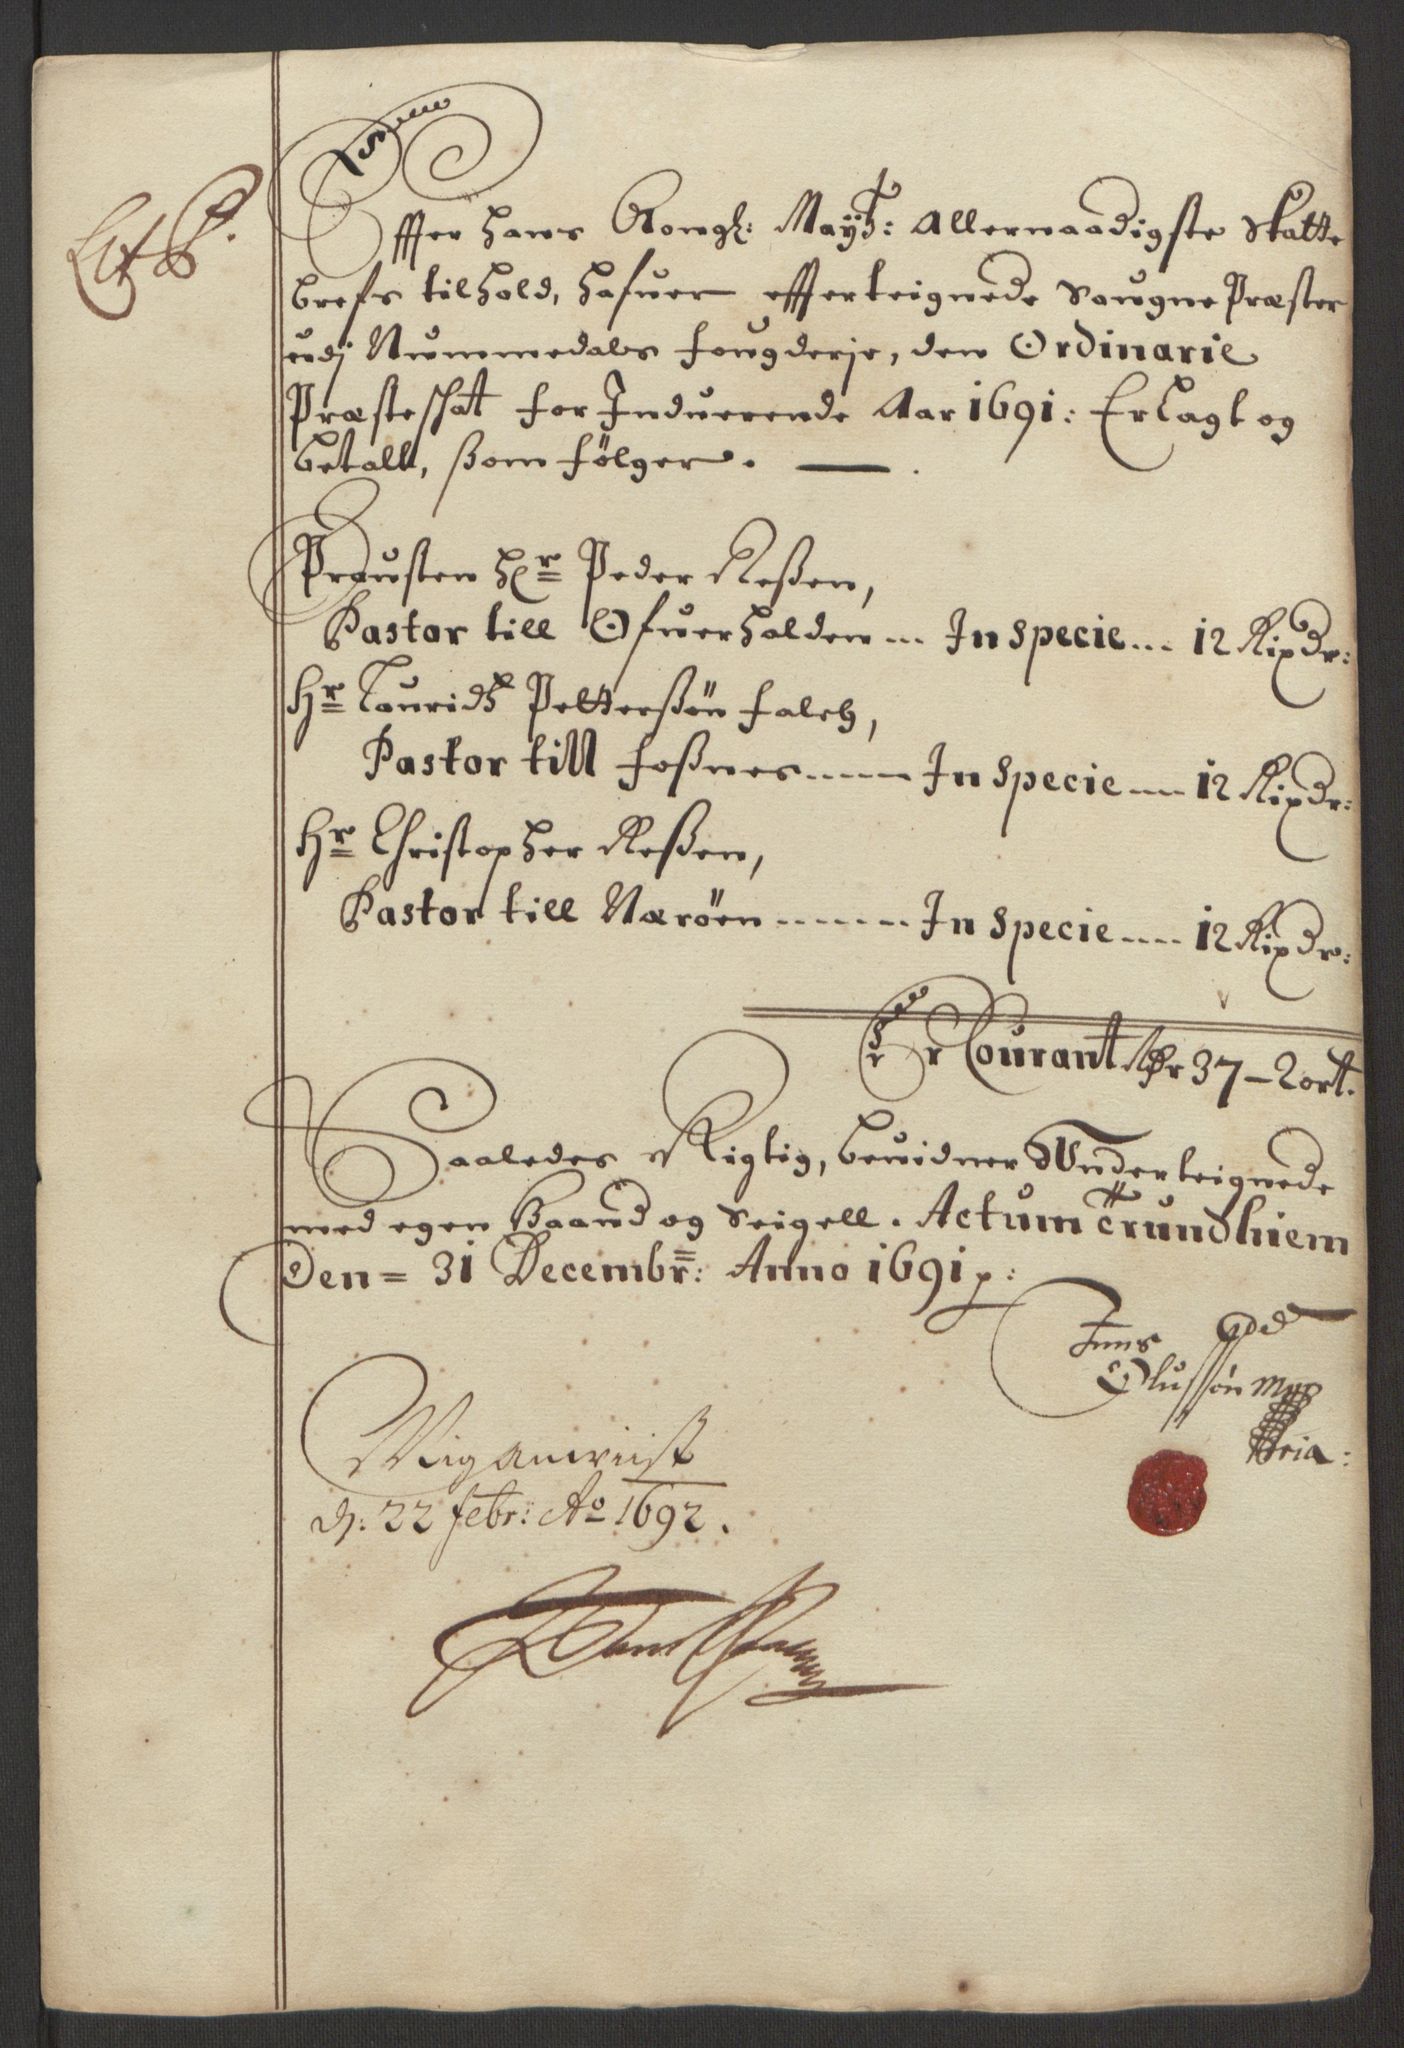 Lit B.
Effter Hans Kongl: Mayts: Allernaadigste Skatte
brefs tilhold, hafuer effterteignede Sougne Præster
udj Nummedals fougderje, den Ordinarie
Præsteschatt for Induerende Aar 1691: Erlagt og
betalt, som følger.
Prousten Hr Peder Reßen,
Pastor till Ofuerhalden ... In specie ... 12 Rixdr:
Hr Lauridß Petterßøn falch,
Pastor till foßnes ... In specie ... 12 Rixdr:
Hr Christopher Reßen,
Pastor till Nærøen ... In specie ... 12 Rixdr:
Er Courant Rdr 37 - 2 ort.
Saaledes Rigtig, beuidner Underteignede
med egen Haand og Seigell. Actum Trundhiem
Den = 31 Decembr: Anno 1691 p:
Jens
Olussøn mpp
ria:
Mig anviist
d: 22 febr: Ao 1692.